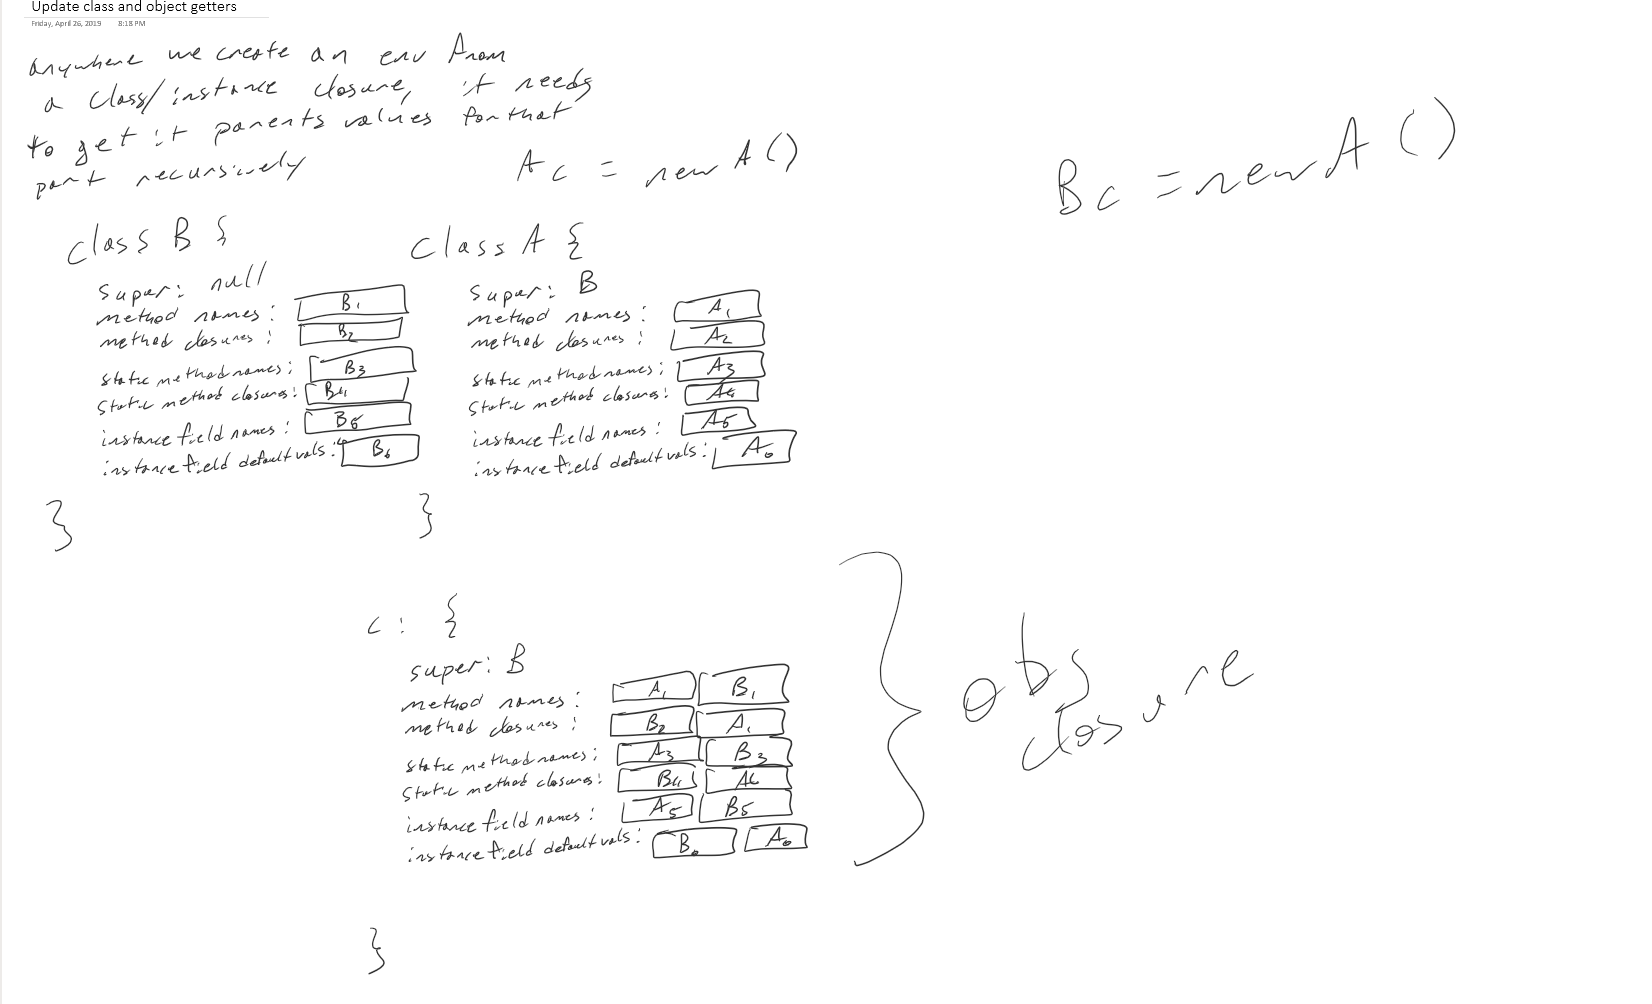 Update class and object getters
Friday, April 26, 2019 8:18 PM
anywhere we create an env from
a class/instance closure, it needs
to get it parents values for that
part recursively
A c = new A ()
B c = new A ()
class B {
super: null
method names: B1
method closures: B2
static method names: B3
static method closures: B4
instance field names: B5
instance field default vals: B6
}
class A {
super: B
method names: A1
method closures: A2
static method names: A3
static method closures: A4
instance field names: A5
instance field default vals: A6
}
c: {
super: B
method names: A1 B1
method closures: B2 A1
static method names; A3 B3
static method closures: B4 A4
instance field names: A5 B5
instance field default vals: B6 A6
}
obj
closure